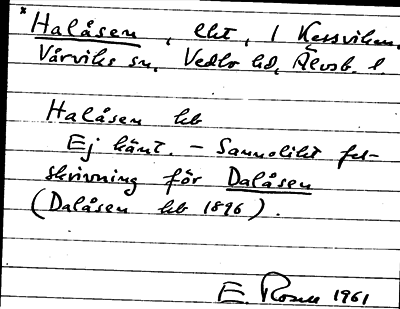 * Halåsen, lht, I Kessviken,
Vårviks sn, Vedbo hd, Älvsb. l.
Halåsen kb
Ej känt. – Sannolikt fel-
skrivning för Dalåsen
(Dalåsen kb 1896).
E. Rosell 1961